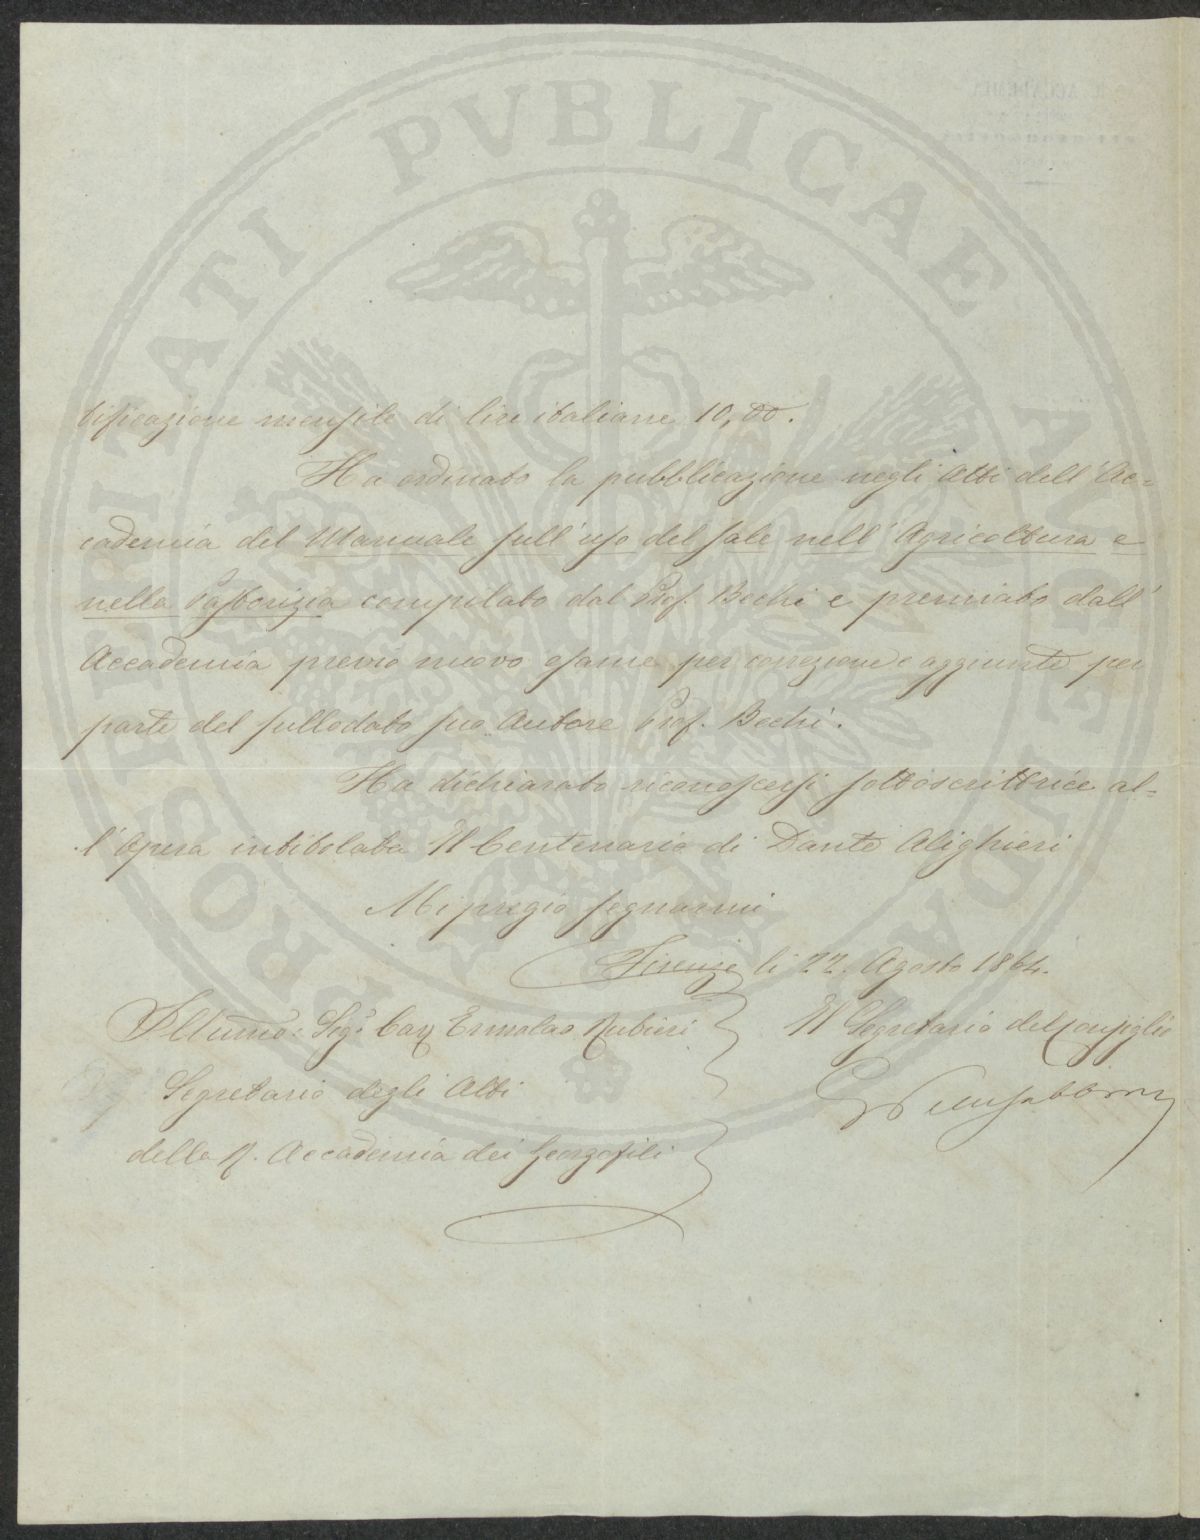 PROSPERITATI PVBLICAE AVGENDAE
tificazione mensile di lire italiane 10,00.
Ha ordinato la pubblicazione negli Atti dell'Ac=
cademia del Manuale sull'uso del sale nell'Agricoltura e
nella Pastorizia compilato dal Prof. Bechi e premiato dall'
Accademia previo nuovo esame per correzione e aggiunte per
parte del sullodato suo Autore Prof. Bechi.
Ha dichiarato riconoscersi sottoscrittrice al=
l'opera intitolata Il Centenario di Dante Alighieri
Mi pregio segnarmi
Firenze li 22. Agosto 1864.
Illumo: Sigr Cav Ermolao Rubieri
Segretario degli Atti
della R. Accademia dei Georgofili
Il Segretario del Consiglio